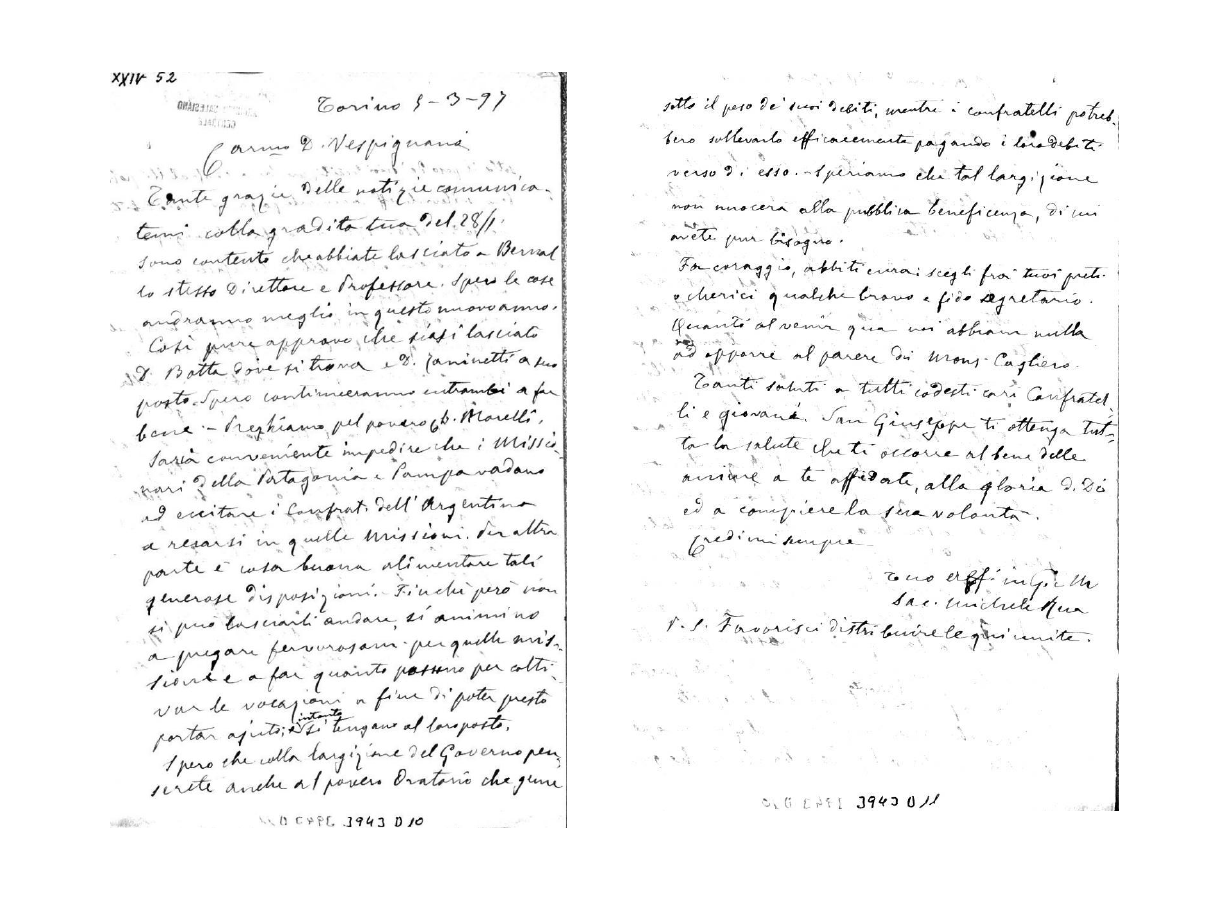 XXIV 52
Torino 5-3-97
Carmo D. Vespignani
Tante grazie delle notizie comunica-
temi colla gradita tua del 28/1.
Sono contento che abbiate lasciato a Bernal
lo stesso Direttore e Professore. Spero le cose
andranno meglio in questo nuovo anno.
Così pure approvo che siasi lasciato
D. Botta dove si trova e D. Zaninetti a suo
posto. Spero continueranno entrambi a far
bene. - Preghiamo pel povero Ch. Morelli.
Saria conveniente impedire che i Missio-
nari della Patagonia e Pampa vadano
ad eccitare i Confrat. dell'Argentina
a recarsi in quelle Missioni. Per altra
parte è cosa buona alimentare tali
generose disposizioni. Finchè però non
si può lasciarli andare, si animino
a pregare fervorosam. per quelle mis-
sioni e a far quanto possono per colti-
var le vocazioni a fine di poter presto
portar ajuto; e intanto si tengano al loro posto.
Spero che colla largizione del Governo pen-
serete anche al povero Oratorio che geme
3943 D 10
sotto il peso de' suoi debiti, mentre i confratelli potreb-
bero sollevarlo efficacemente pagando i loro debiti
verso di esso. - Speriamo che tal largizione
non nuocerà alla pubblica beneficenza, di cui
avete pur bisogno.
Fa coraggio, abbiti cura: scegli fra i tuoi preti
o cherici qualche bravo e fido segretario.
Quanto al venir qua noi abbiam nulla
ad opporre al parere di Mons. Cagliero.
Tanti saluti a tutti codesti cari Confratel-
li e giovani. San Giuseppe ti ottenga tut-
ta la salute che ti occorre al bene delle
anime a te affidate, alla gloria di Dio
ed a compiere la sua volontà.
Credimi sempre
Tuo aff. in G. e M.
Sac. Michele Rua
P. S. Favorisci distribuire le qui unite.
3943 D 11